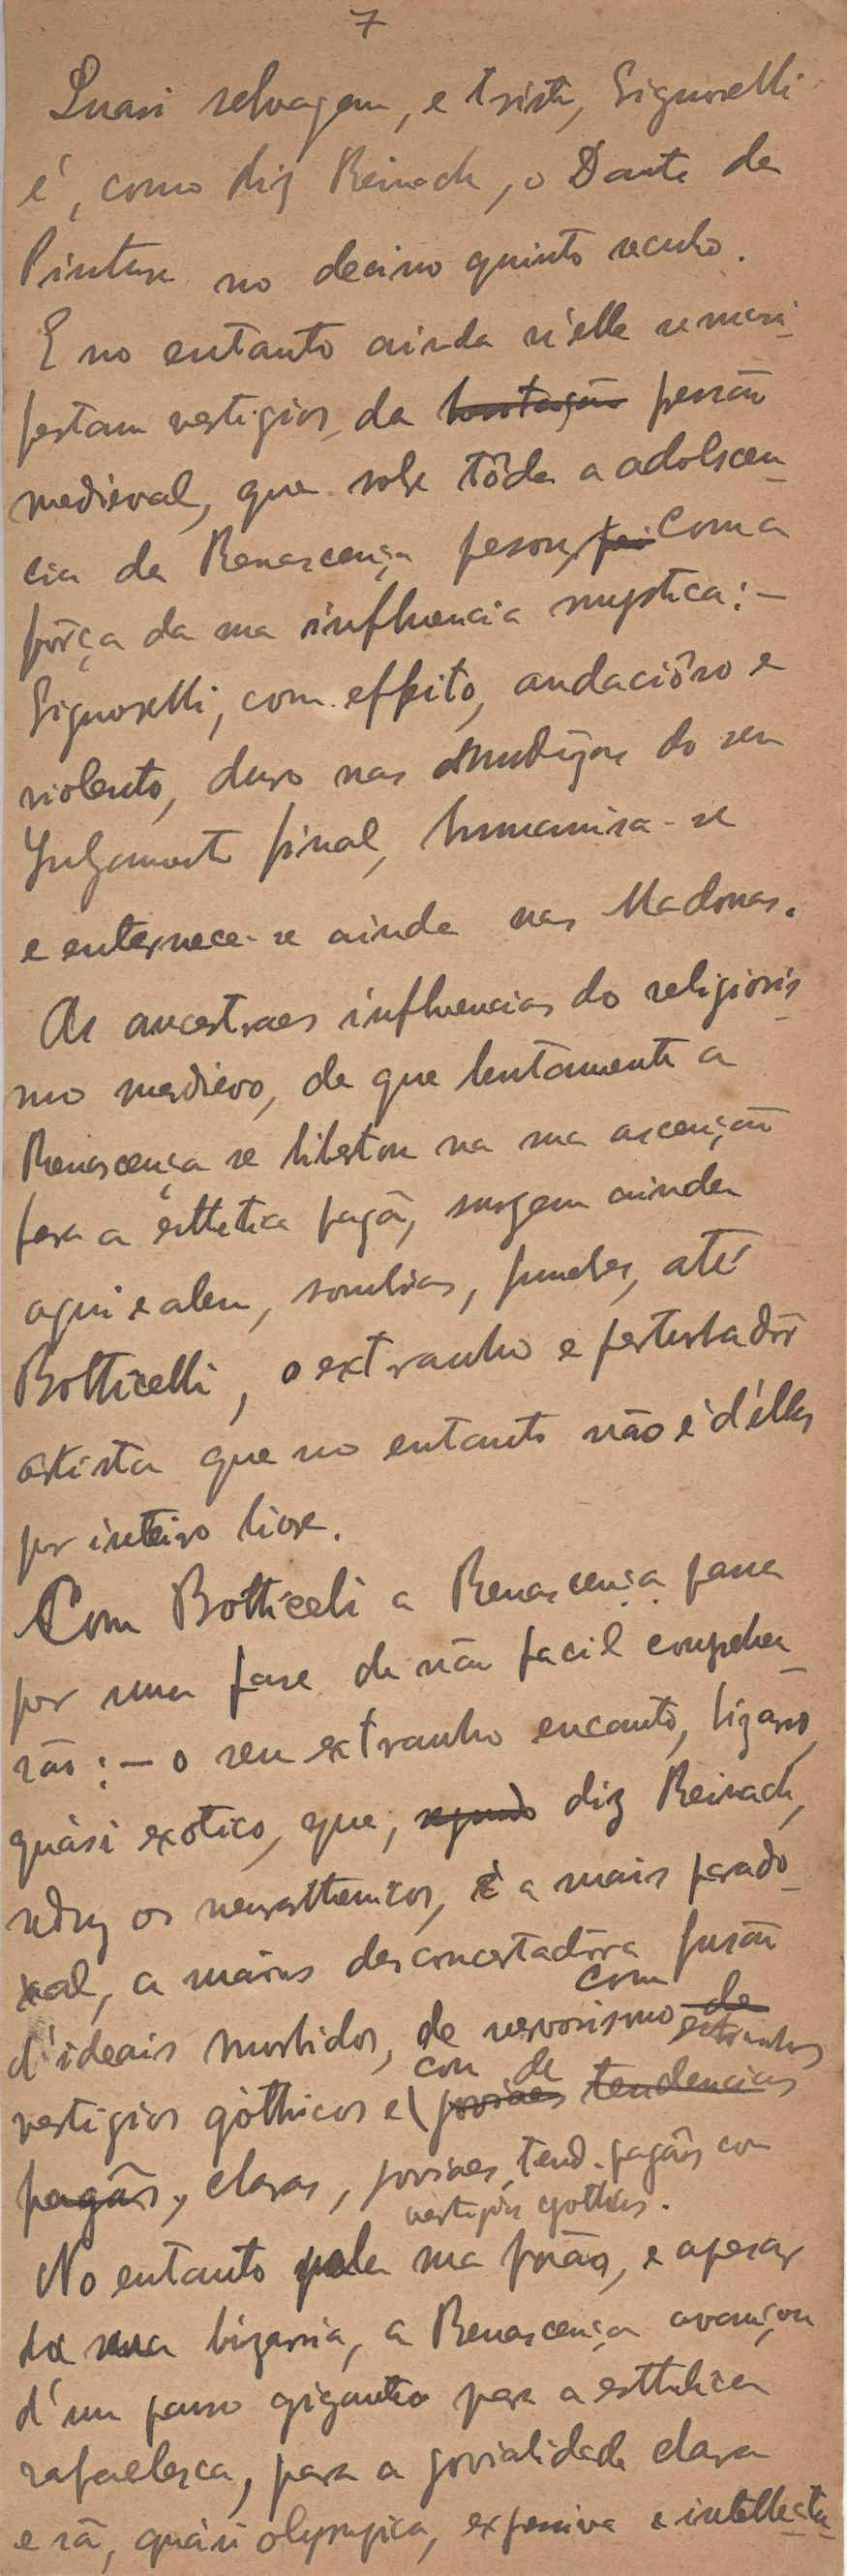 7
Quasi selvagem, e triste, Signorelli
é, como diz Reinach, o Dante da
Pintura no decimo quinto seculo.
E no entanto ainda n'elle se mani-
festam vestigios da pressão
medieval, que sobre tôda a adolscen-
cia da Renascença pesou com a
fôrça da sua influencia mystica: –
Signorelli, com effeito, audaciôso e
violento, duro nas nudezas do seu
Julgamento final, humanisa-se
e enternece-se ainda nas Madonas.
As ancestraes influencias do religiosis-
mo medievo, de que lentamente a
Renascença se libertou na sua ascenção
para a esthetica pagã, surgem ainda
aqui e alem, sombrias, funebres, até
Botticelli, o extranho e perturbadôr
artista que no entanto não é d'ellas
por inteiro livre.
Com Botticeli a Renascença passa
por uma fase de não facil comprehen-
são: – o seu extranho encanto, bizarro,
quàsi exotico, que, segundo diz Reinach,
seduz os neurasthenicos, é a mais parado-
xal, a mais desconcertadôra fusão
d'ideais morbidos, de nervosismo com de extranhos
vestigios góthicos e com de joviaes tendencias
pagãs, claras, joviaes, tend. pagãs com
vestigios gothicos.
No entanto pela sua fusão, e apesar
da sua bizarria, a Renascença avançou
d'um passo gigante para a esthetica
rafaelesca, para a jovialidade clara
e sã, quàsi olympica, expansiva e intellectu-